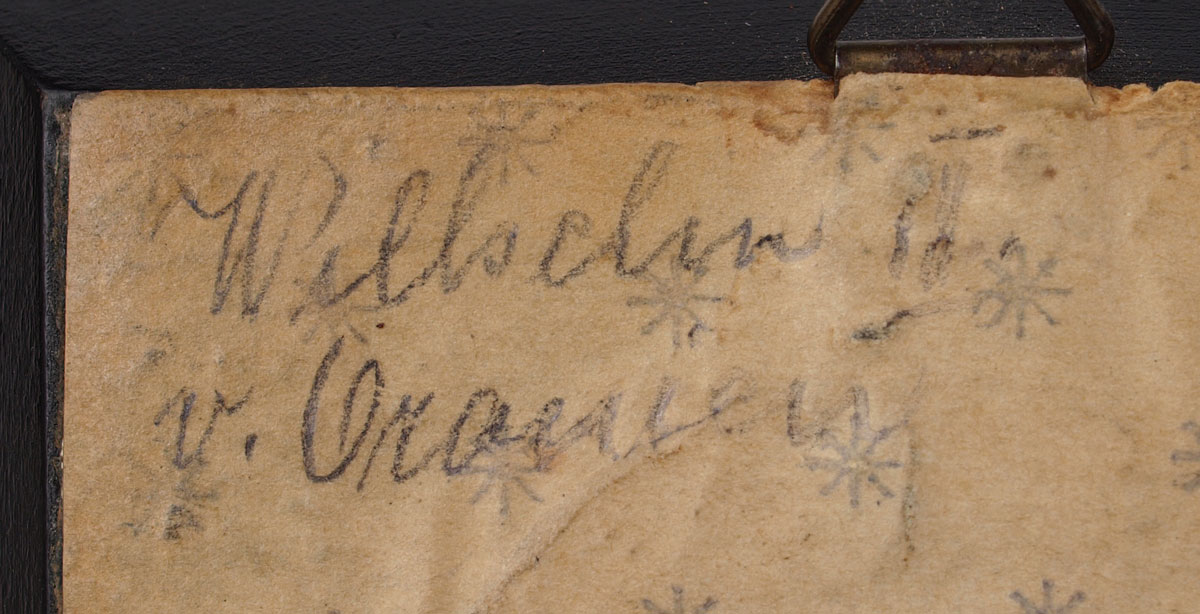 Wilhelm II.
v. Oranien